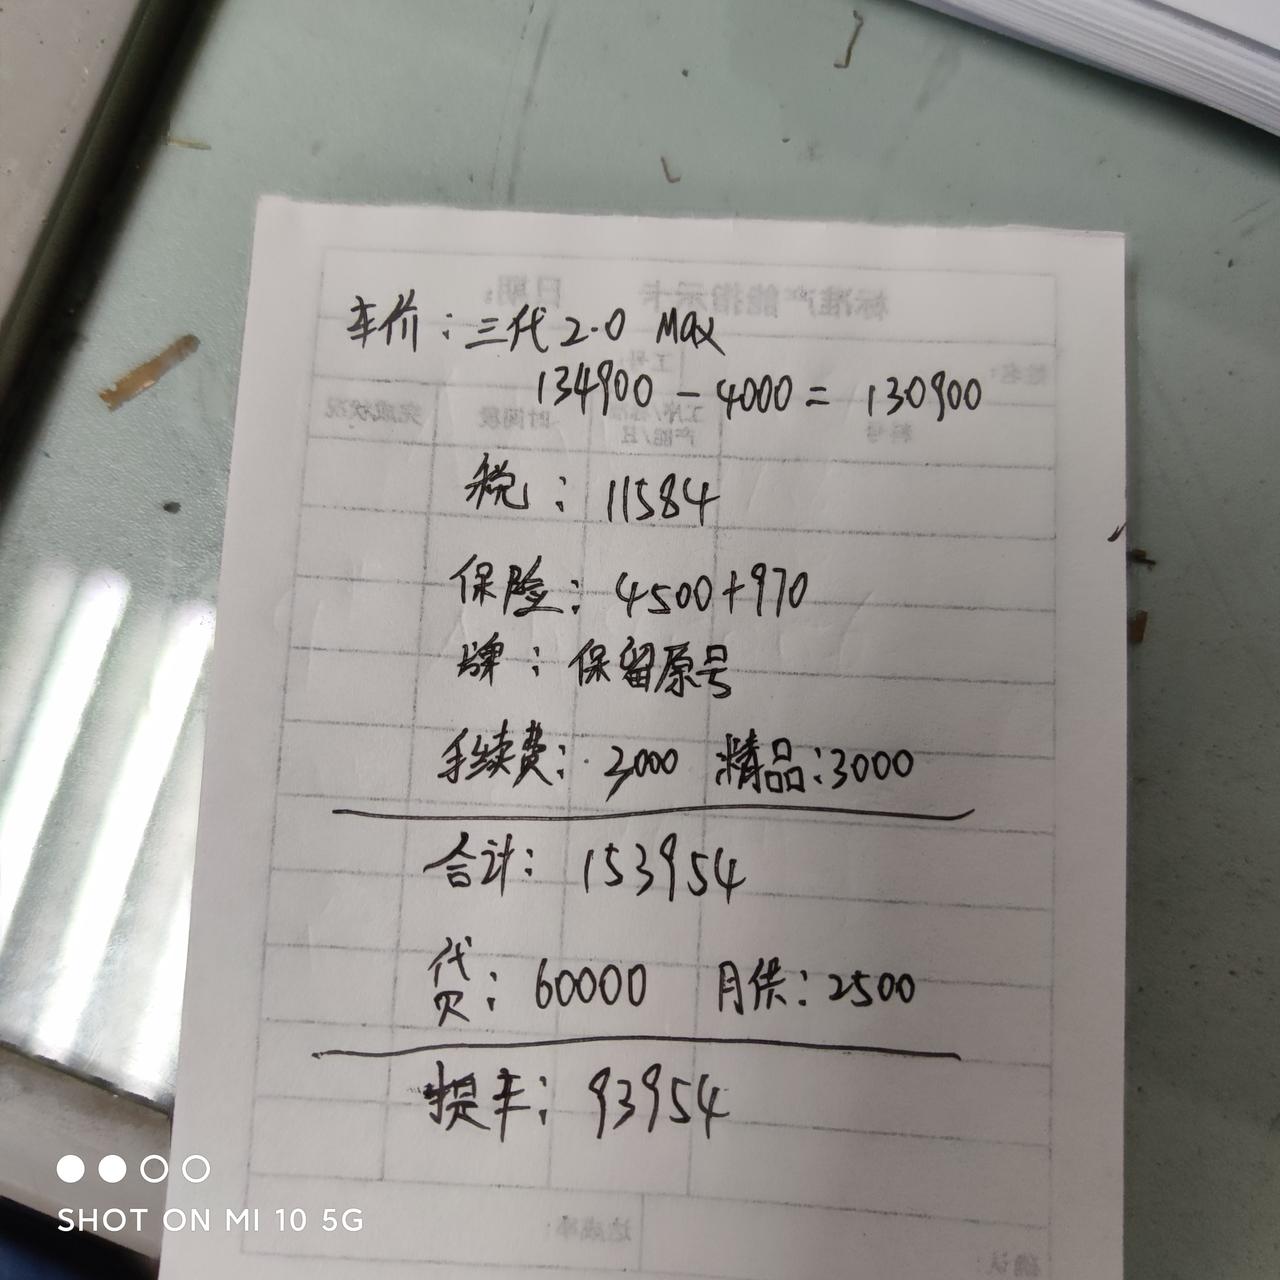 车价：三代2.0 Max
134900 - 4000 = 130900
税：11584
保险：4500+970
牌：保留原号
手续费：3000 精品：3000
合计：153954
贷：60000 月供：2500
提车：93954
SHOT ON MI 10 5G